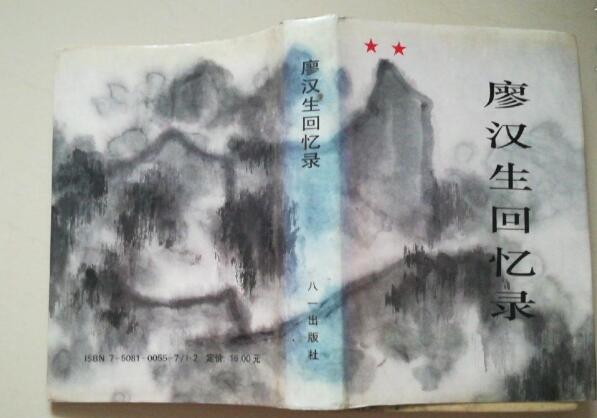 廖汉生回忆录
廖汉生回忆录
八一出版社
ISBN 7-5081-0055-7/I·2 定价: 16.00元